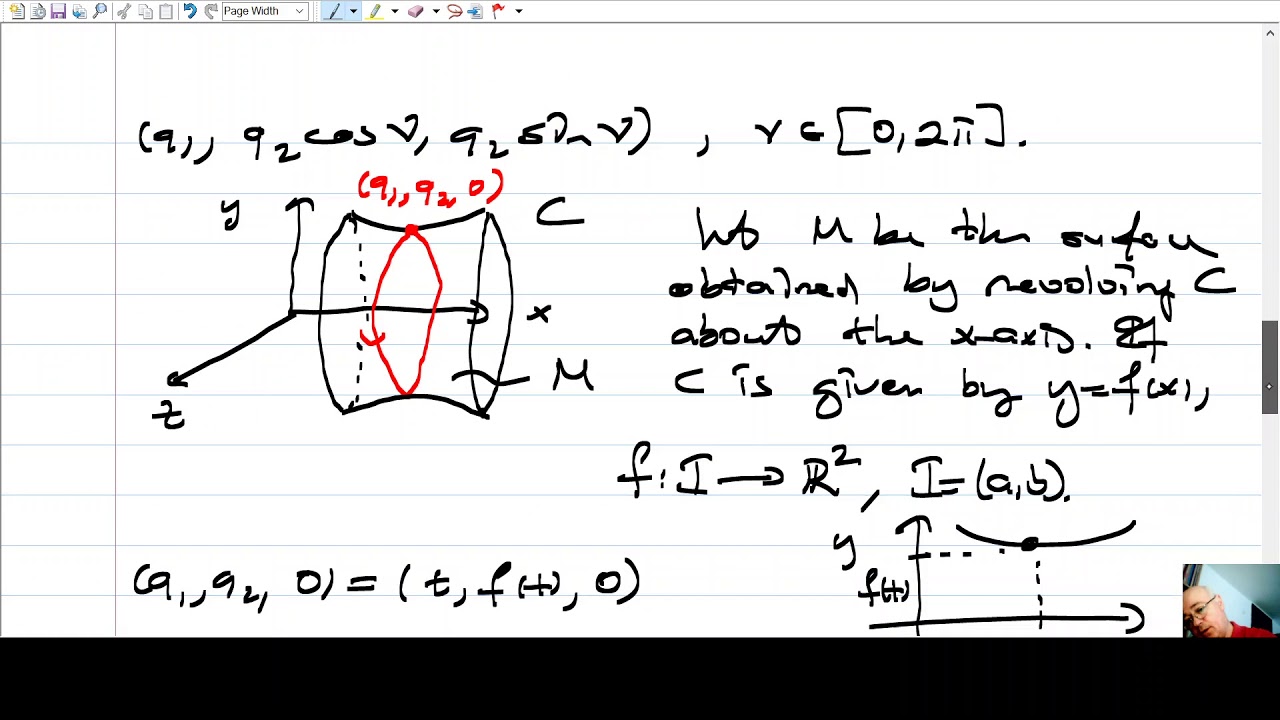 Page Width
(q₁, q₂ cos v, q₂ sin v) , v ∈ [0, 2π].
(q₁, q₂, 0)
y
C
x
M
z
Let M be the surface
obtained by revolving C
about the x-axis. If
C is given by y=f(x),
f: I → ℝ², I=(a,b).
y
f(t)
(q₁, q₂, 0) = (t, f(t), 0)